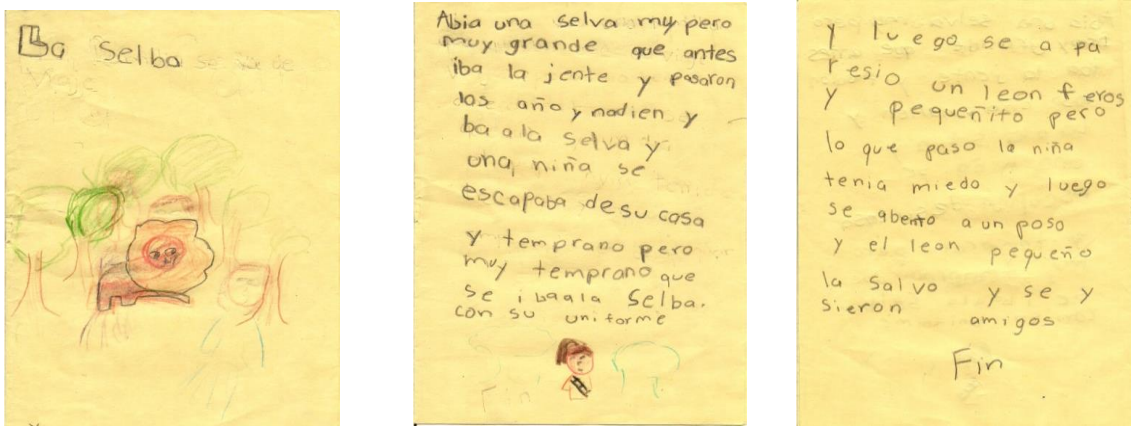 La selba
Abia una selva my pero
muy grande que antes
iba la jente y pasaron
los año y nadien y
ba a la selva y
una, niña se
escapaba de su casa
y temprano pero
muy temprano que
se ibaala Selba.
con su uniforme
Fin
y luego se a pa
resio un leon feros
y pequeñito pero
lo que paso la niña
tenia miedo y luego
se abento a un poso
y el leon pequeño
la salvo y se y
sieron amigos
Fin